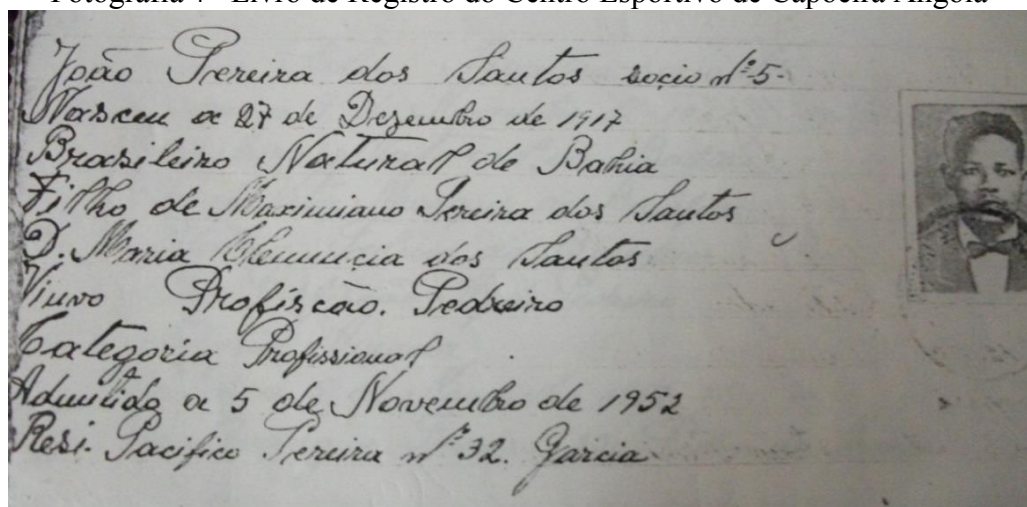 Fotografia 4 - Livro de Registro do Centro Esportivo de Capoeira Angola
João Pereira dos Santos socio nº 5-
Nasceu a 27 de Dezembro de 1917
Brazileiro Natural de Bahia
Filho de Maximiano Pereira dos Santos
D. Maria dos Santos
Viuvo Profiscão. Pedreiro
Categoria Profissional
Admitido a 5 de Novembro de 1952
Resi. Pacifico Pereira nº 32. Garcia